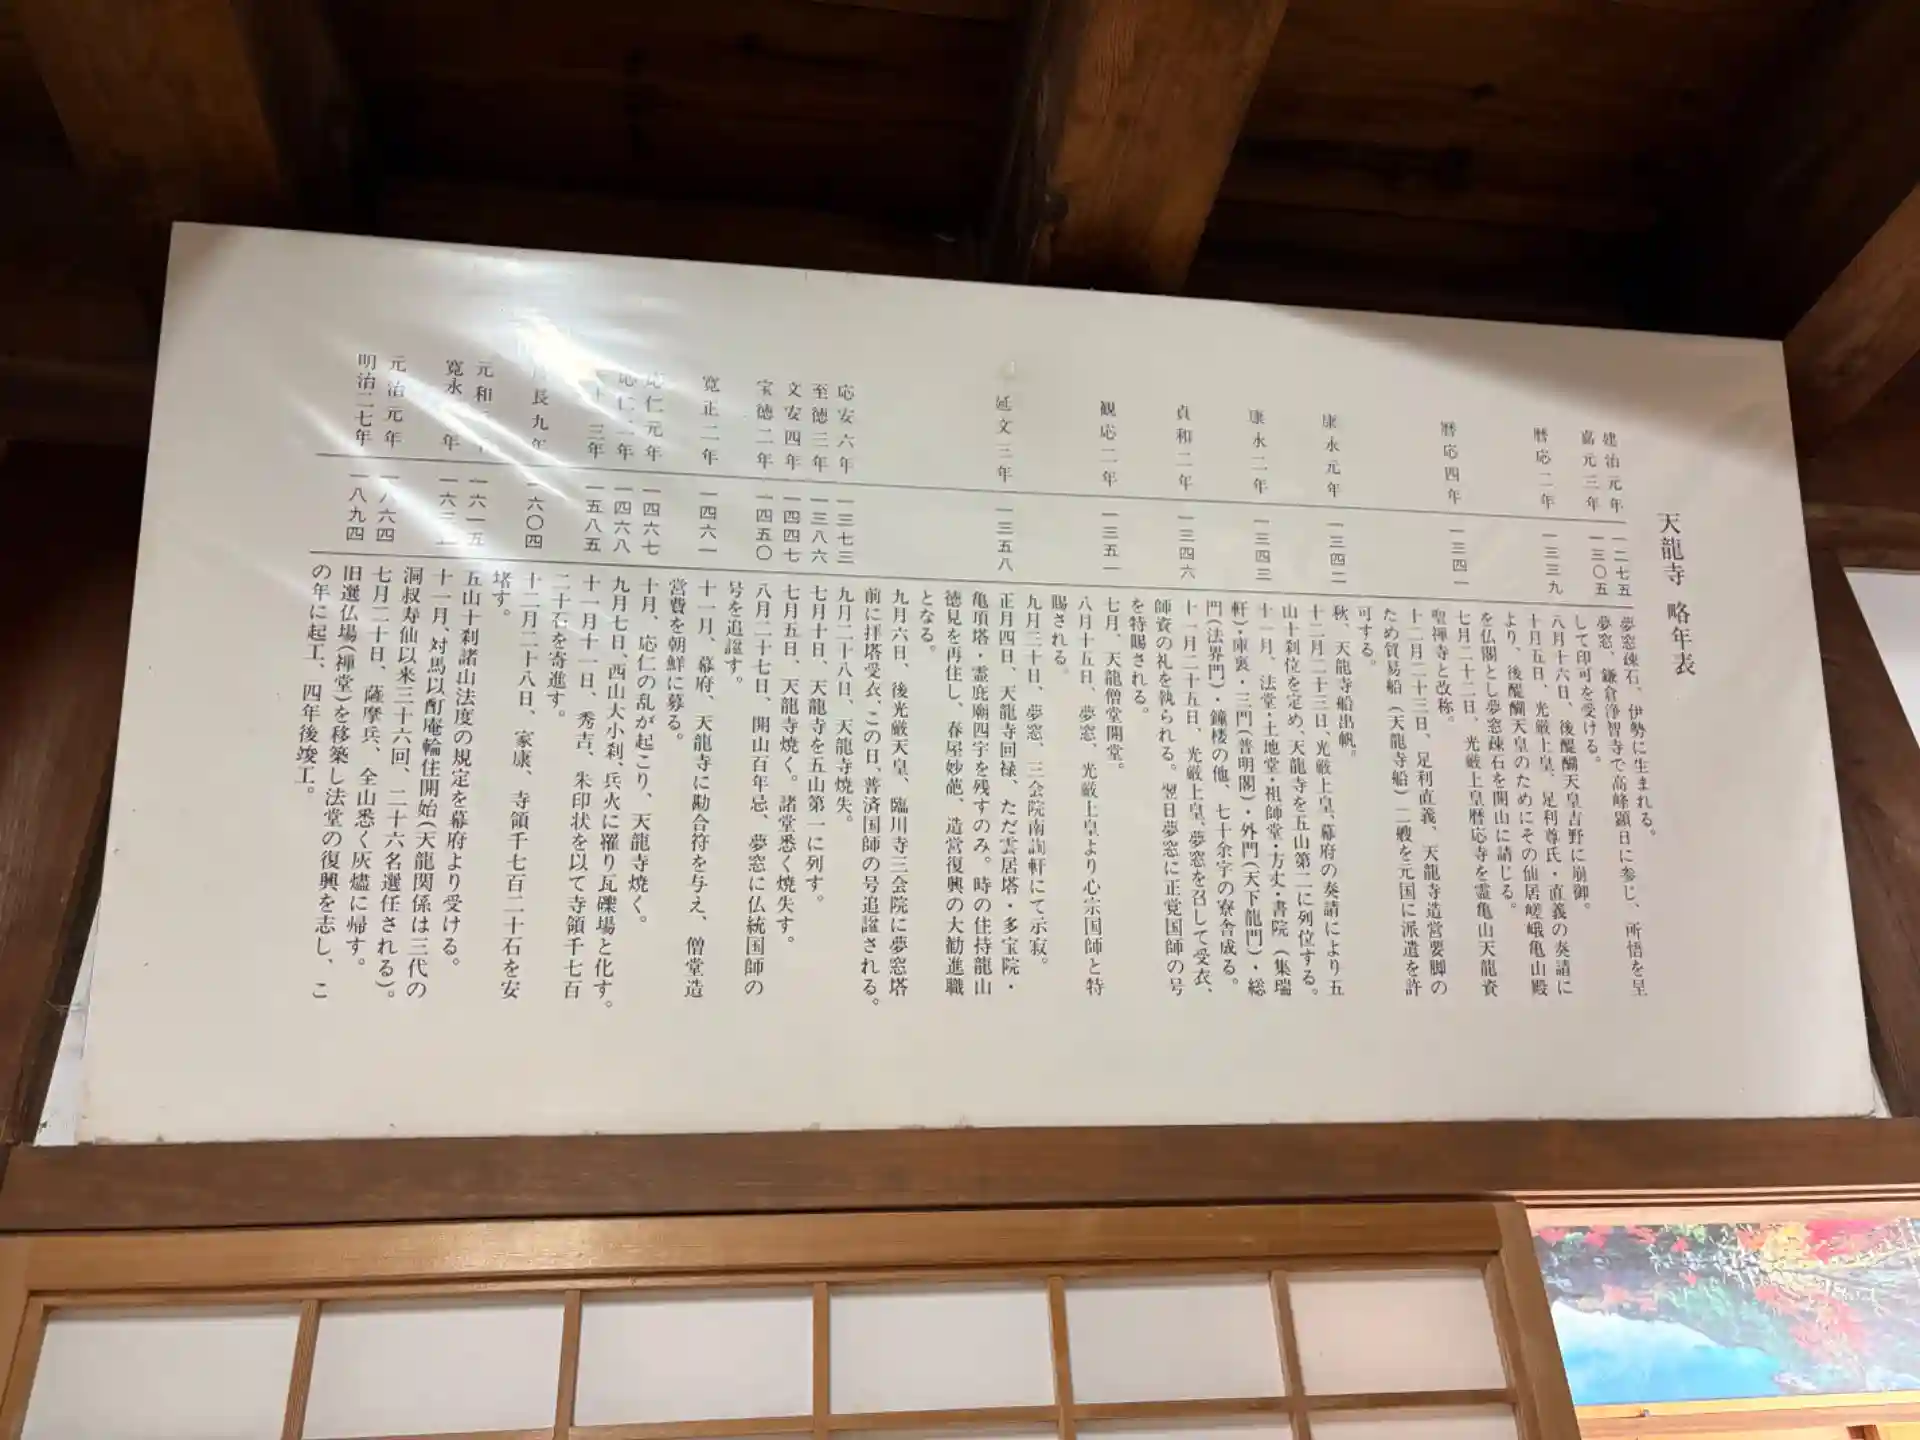 天龍寺 略年表
建治元年 一二七五 夢窓疎石、伊勢に生まれる。
嘉元三年 一三〇五 夢窓、鎌倉浄智寺で高峰顕日に参じ、所悟を呈
して印可を受ける。
暦応二年 一三三九 八月十六日、後醍醐天皇吉野に崩御。
十月五日、光厳上皇、足利尊氏・直義の奏請に
より、後醍醐天皇のためにその仙居嵯峨亀山殿
を仏閣とし夢窓疎石を開山に請じる。
暦応四年 一三四一 七月二十二日、光厳上皇暦応寺を霊亀山天龍資
聖禅寺と改称。
十二月二十三日、足利直義、天龍寺造営要脚の
ため貿易船（天龍寺船）二艘を元国に派遣を許
可する。
康永元年 一三四二 秋、天龍寺船出帆。
十二月二十三日、光厳上皇、幕府の奏請により五
山十刹位を定め、天龍寺を五山第二に列位する。
康永二年 一三四三 十一月、法堂・土地堂・祖師堂・方丈・書院（集瑞
軒）・庫裏・三門（普明閣）・外門（天下龍門）・総
門（法界門）・鐘楼の他、七十余宇の寮舎成る。
貞和二年 一三四六 十一月二十五日、光厳上皇、夢窓を召して受衣、
師資の礼を執られる。翌日夢窓に正覚国師の号
を特賜される。
観応二年 一三五一 七月、天龍僧堂開堂。
八月十五日、夢窓、光厳上皇より心宗国師と特
賜される。
九月三十日、夢窓、三会院南詢軒にて示寂。
延文三年 一三五八 正月四日、天龍寺回禄、ただ雲居塔・多宝院・
亀頂塔・霊庇廟四宇を残すのみ。時の住持龍山
徳見を再住し、春屋妙葩、造営復興の大勧進職
となる。
九月六日、後光厳天皇、臨川寺三会院に夢窓塔
前に拝塔受衣、この日、普済国師の号追諡される。
応安六年 一三七三 九月二十八日、天龍寺焼失。
至徳三年 一三八六 七月十日、天龍寺を五山第一に列す。
文安四年 一四四七 七月五日、天龍寺焼く。諸堂悉く焼失す。
宝徳二年 一四五〇 八月二十七日、開山百年忌、夢窓に仏統国師の
号を追諡す。
寛正二年 一四六一 十一月、幕府、天龍寺に勘合符を与え、僧堂造
営費を朝鮮に募る。
応仁元年 一四六七 十月、応仁の乱が起こり、天龍寺焼く。
応仁二年 一四六八 九月七日、西山大小刹、兵火に罹り瓦礫場と化す。
十三年 一五八五 十一月十一日、秀吉、朱印状を以て寺領千七百
二十石を寄進す。
長九年 一六〇四 十二月二十八日、家康、寺領千七百二十石を安
堵す。
元和 年 一六一五 五山十刹諸山法度の規定を幕府より受ける。
寛永 年 一六三 十一月、対馬以酊庵輪住開始（天龍関係は三代の
洞叔寿仙以来三十六回、二十六名選任される）。
元治元年 一八六四 七月二十日、薩摩兵、全山悉く灰燼に帰す。
明治二七年 一八九四 旧選仏場（禅堂）を移築し法堂の復興を志し、こ
の年に起工、四年後竣工。